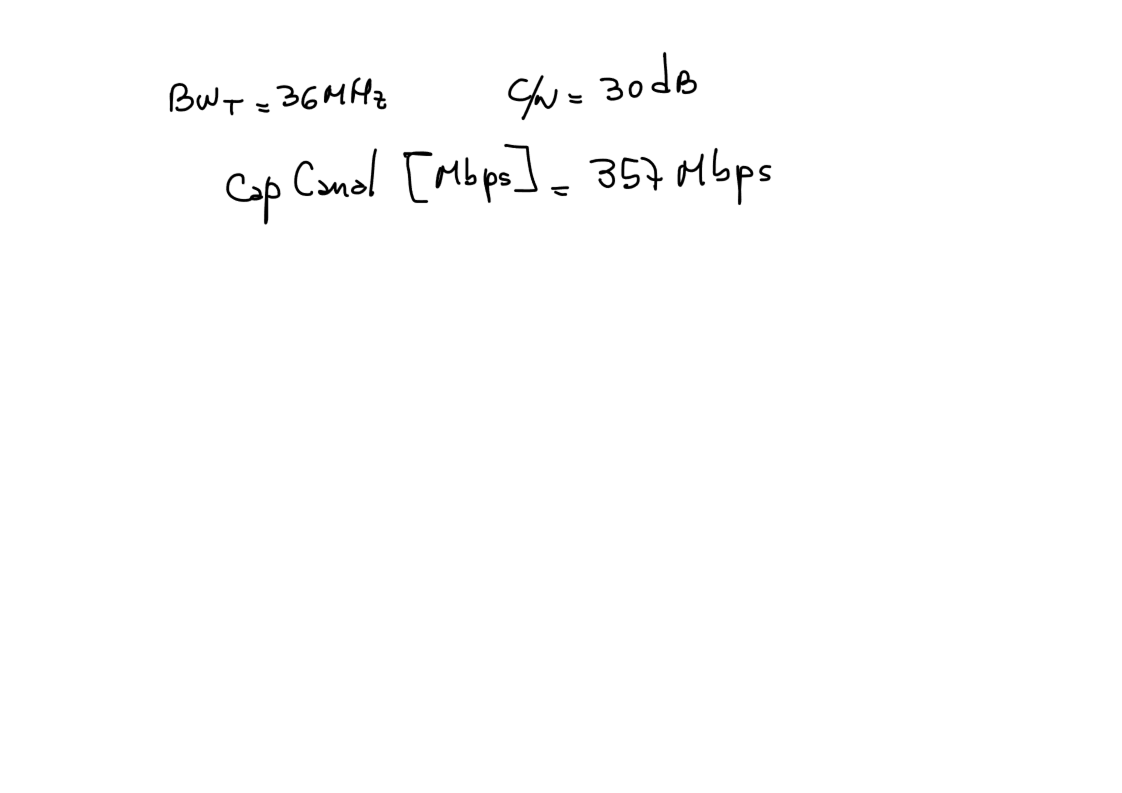 BW_T = 36 MHz C/N = 30 dB
Cap Canal [Mbps] = 357 Mbps